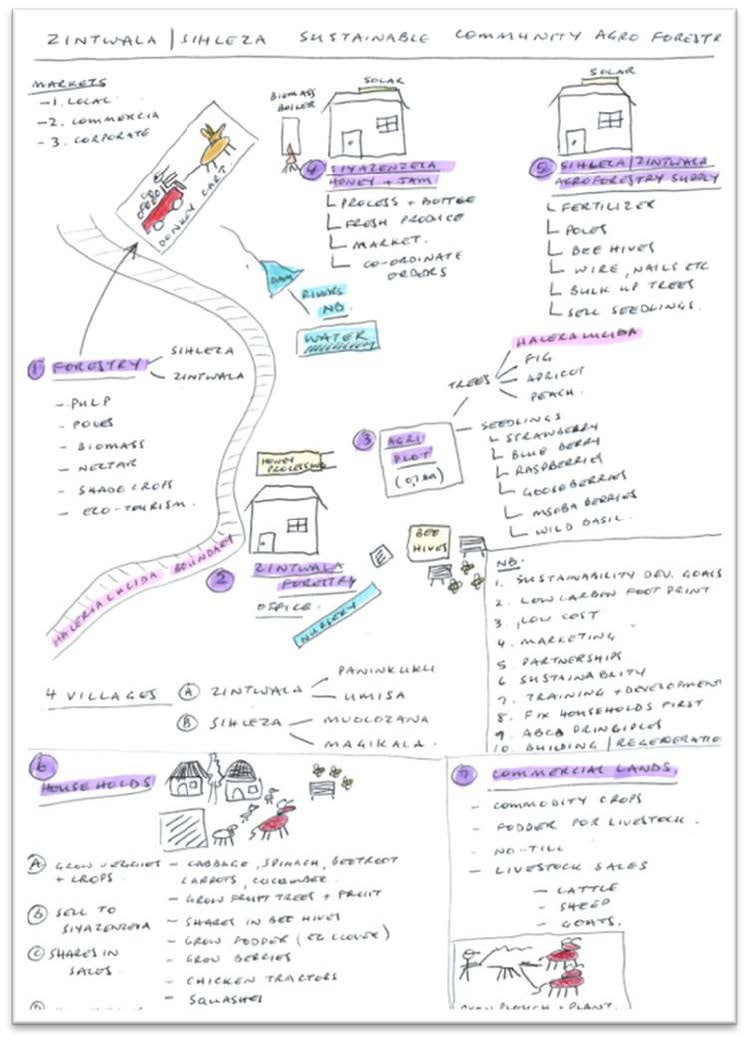 ZINTWALA | SIHLEZA SUSTAINABLE COMMUNITY AGRO FORESTR
MARKETS
- 1. LOCAL
- 2. COMMERCIA
- 3. CORPORATE
DONKEY CART
BIOMASS
BOILER
SOLAR
4 SIYAZENZELA
HONEY + JAM
PROCESS + BOTTLE
FRESH PRODUCE
MARKET.
CO-ORDINATE
ORDERS
SOLAR
5 SIHLEZA/ZINTWALA
AGROFORESTRY SUPPLY
FERTILIZER
POLES
BEE HIVES
WIRE, NAILS ETC
BULK UP TREES
SELL SEEDLINGS.
DAM
RIVERS
NB.
WATER
1 FORESTRY
SIHLEZA
ZINTWALA
- PULP
- POLES
- BIOMASS
- NECTAR
- SHADE CROPS
- ECO-TOURISM.
TREES
HALERIA LULIDA
FIG
APRICOT
PEACH.
3 AGRI
PLOT
(0,7 HA)
SEEDLINGS
STRAWBERRY
BLUE BERRY
RASPBERRIES
GOOSEBERRIES
MSOBA BERRIES
WILD BASIL.
HONEY
PROCESSING
HALERIA LULIDA BOUNDARY
2 ZINTWALA
FORESTRY
OFFICE.
NURSERY
BEE
HIVES
NB.
1. SUSTAINABILITY DEV. GOALS
2. LOW CARBON FOOT PRINT
3. LOW COST
4. MARKETING
5 PARTNERSHIPS
6 SUSTAINABILITY
7. TRAINING + DEVELOPMENT
8. FIX HOUSEHOLDS FIRST
9. ABCD PRINCIPLES
10. BUILDING / REGENERATIO
4 VILLAGES
A ZINTWALA
PANINKUKU
UMISA
B SIHLEZA
MUOLOZANA
MAGIKALA.
6
HOUSEHOLDS
A GROW VEGGIES
+ CROPS.
- CABBAGE, SPINACH, BEETROOT
CARROTS, CUCUMBER.
- GROW FRUIT TREES + FRUIT
B SELL TO
SIYAZENZELA
- SHARES IN BEE HIVES
- GROW FODDER (EG CLOVER)
C SHARES IN
SALES
- GROW BERRIES
- CHICKEN TRACTORS
- SQUASHES
7 COMMERCIAL LANDS.
- COMMODITY CROPS
- FODDER FOR LIVESTOCK.
- NO-TILL
- LIVESTOCK SALES
- CATTLE
- SHEEP
- GOATS.
PLOUGH + PLANT.